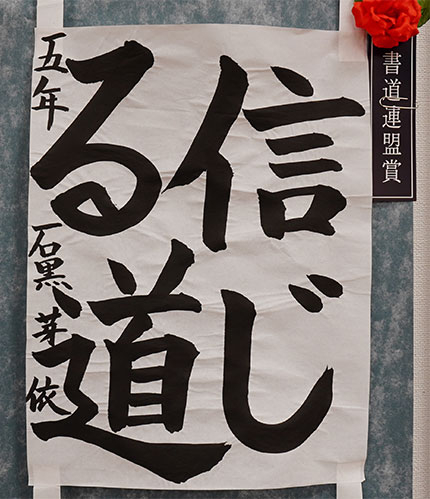 書道連盟賞
信じ
る道
五年 石黒芽依